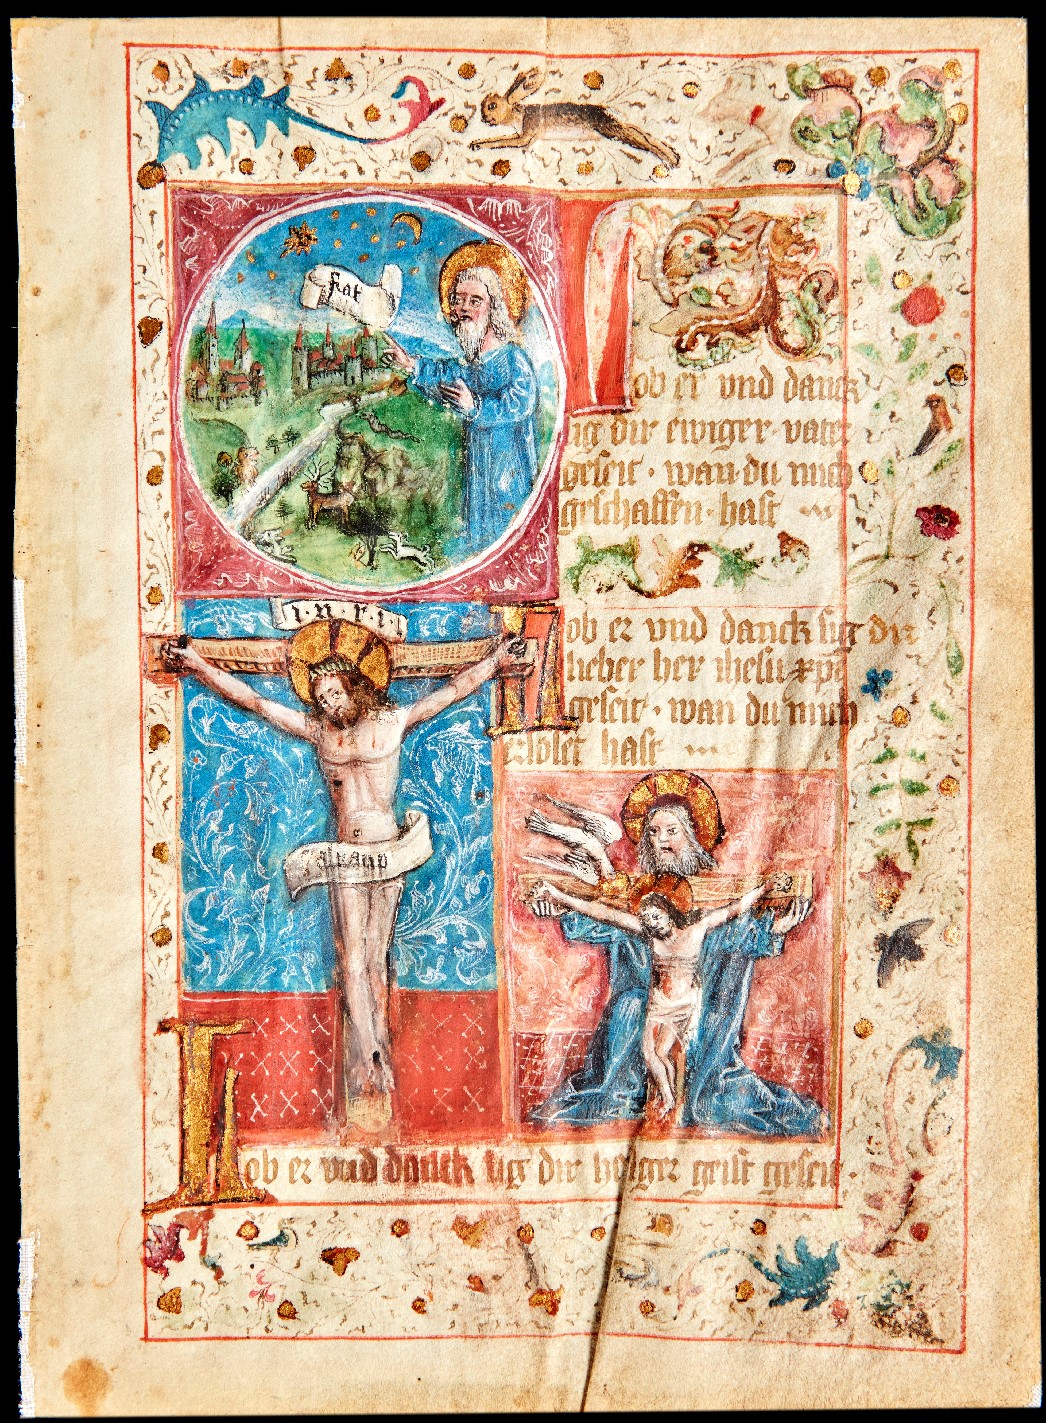 fiat
Lob er vnd danck
sig dir ewiger vater
geseit · wan du mich
geschaffen · hast
i · n · r · i ·
Lob er vnd danck sig dir
lieber her ihesu xpe
geseit · wan du mich
erloset hast
Lob er vnd danck sig dir heiliger geist geseit ·